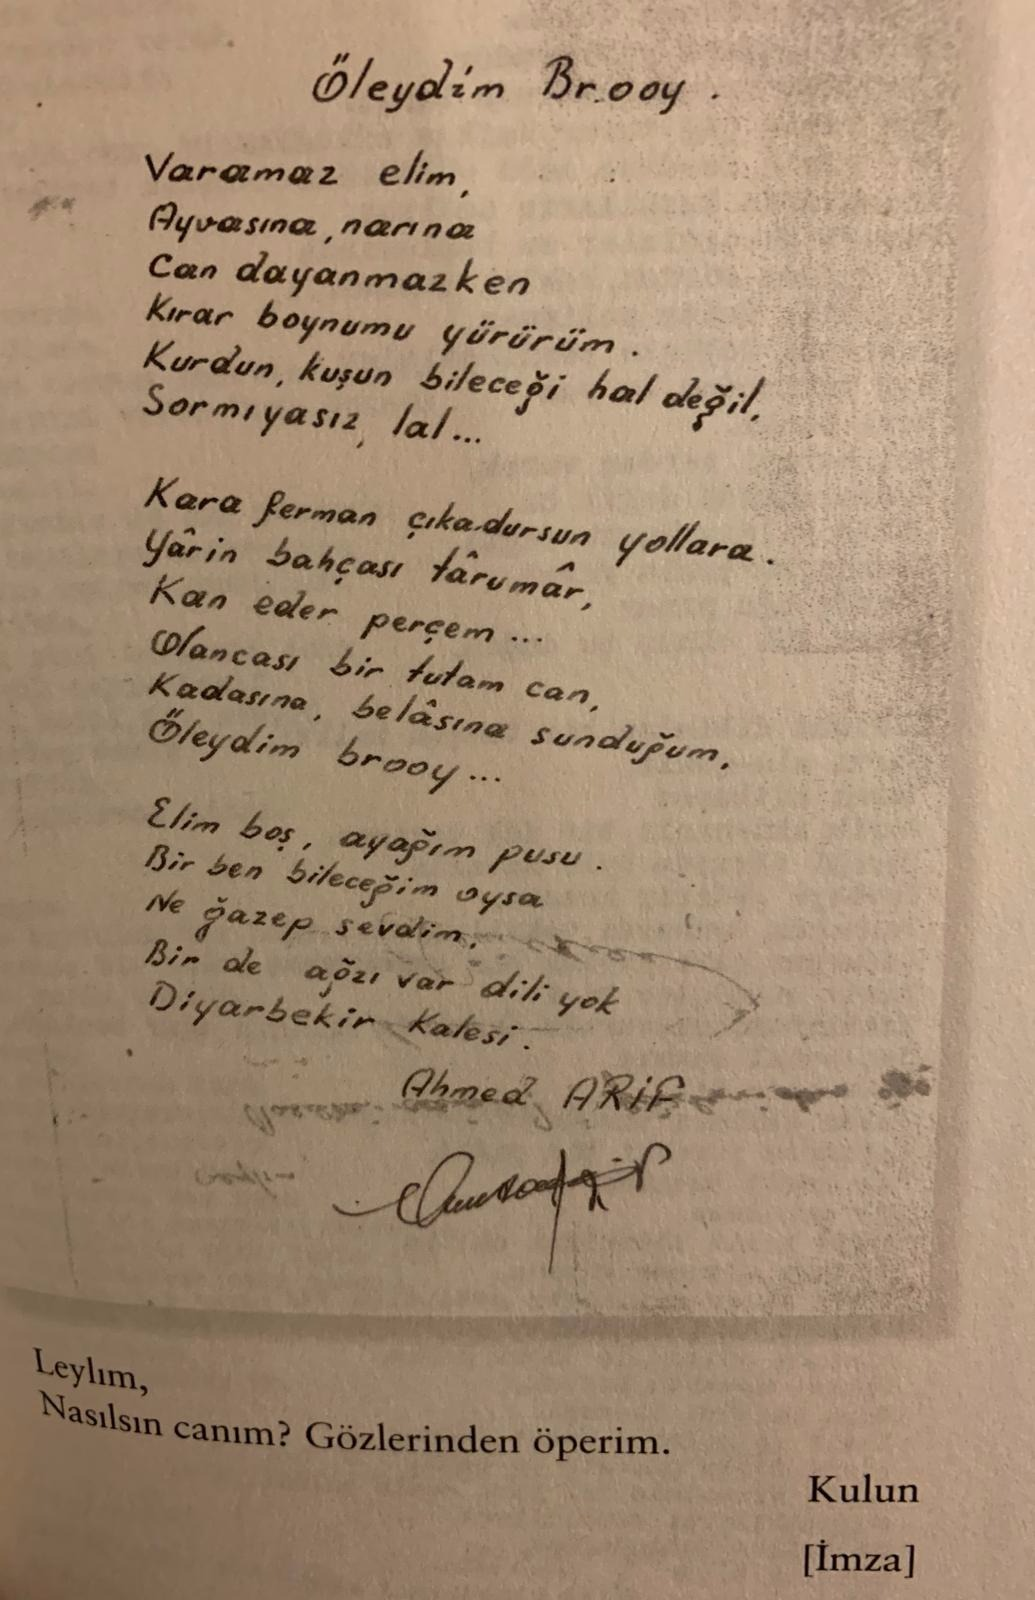 Öleydim Brooy.
Varamaz elim,
Ayvasına, narına
Can dayanmazken
Kırar boynumu yürürüm.
Kurdun, kuşun bileceği hal değil,
Sormıyasız, lal...
Kara ferman çıkadursun yollara.
Yârin bahçası târumâr,
Kan eder perçem...
Olancası bir tutam can,
Kadasına, belâsına sunduğum,
Öleydim brooy...
Elim boş, ayağım pusu.
Bir ben bileceğim oysa
Ne ğazep sevdim.
Bir de ağzı var dili yok
Diyarbekir Kalesi.
Ahmed ARİF
Leylım,
Nasılsın canım? Gözlerinden öperim.
Kulun
[İmza]